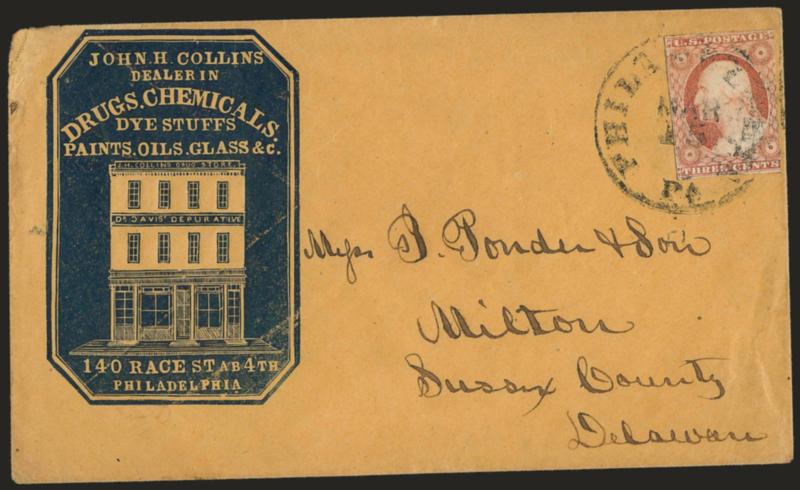 JOHN. H. COLLINS
DEALER IN
DRUGS, CHEMICALS,
DYE STUFFS
PAINTS, OILS, GLASS &c.
J.H. COLLINS DRUG STORE.
Dr DAVIS' DEPURATIVE
140 RACE ST AB 4TH
PHILADELPHIA
U.S. POSTAGE
THREE CENTS
MAR
Pa
P. Ponder & Son
Milton
Sussex County
Delawar